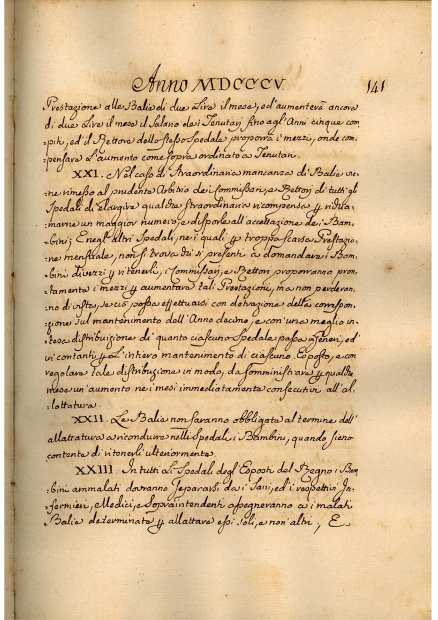 Anno MDCCCV 141
Prestazione alle Balie di due Lire il mese, ed'aumenterà ancora
di due Lire il mese il Salario dei Tenutarj fino agl'Anni cinque com
piti, ed il Rettore dello stesso Spedale proporrà i mezzi, onde com
pensare l'aumento come sopra ordinato a Tenutarj
XXI. Nel caso di Straordinaria mancanza di Balie vie
ne rimesso al prudente Arbitrio dei Commissarj, e Rettori di tutti gli
Spedali di elargire qualche straordinaria ricompensa p richia
marne un maggior numero, e disporle all'accettazione dei Bam
bini; E negl'altri Spedali, nei quali p troppo scarsa Prestazio
ne mensuale, non si trova chi si presenti a domandare i Bam
bini diversi p ritenerli, i Commissarj, e Rettori proporranno pron
tamente i mezzi p aumentare tali Prestazioni, ma non perderan
no di vista, se ciò possa effettuarsi con detrazione della correspon
sione sul mantenimento dell'Anno decimo, e con una meglio in
tesa distribuzione di quanto ciascuno Spedale passa in generi, ed
in contanti p l'intiero mantenimento di ciascuno Esposto, e con
regolare tale distribuzione in modo, da somministrare p qualche
mese un'aumento nei mesi immediatamente consecutivi all'al
lattatura.
XXII. Le Balie non saranno obbligate al termine dell'
allattatura a ricondurre nelli Spedali i Bambini, quando sieno
contente di ritenerli ulteriormente.
XXIII. In tutti gli Spedali degl'Esposti del Regno i Bam
bini ammalati dovranno separarsi dai Sani, ed i respettivi In
fermieri, Medici, e Soprintendenti assegneranno ai malati
Balie determinate p allattare essi soli, e non altri; E